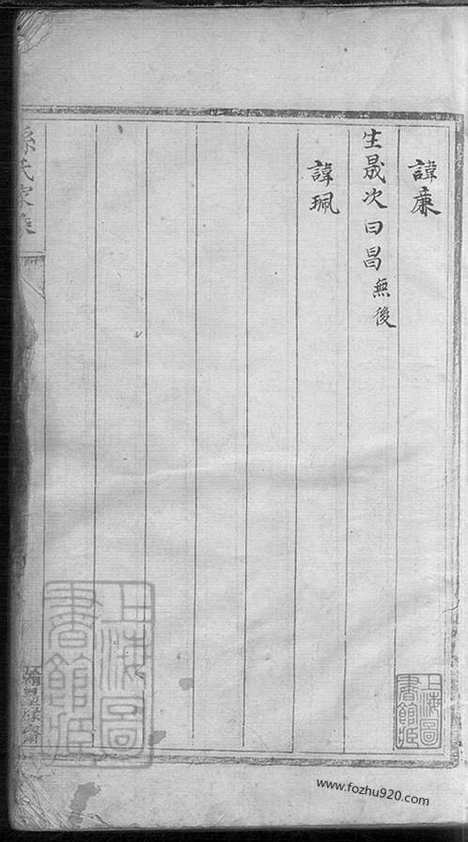 諱廉
生晟次曰昌無後
諱珮
孫氏家乘
上海圖書館藏
上海圖書館藏
www.fozhu920.com